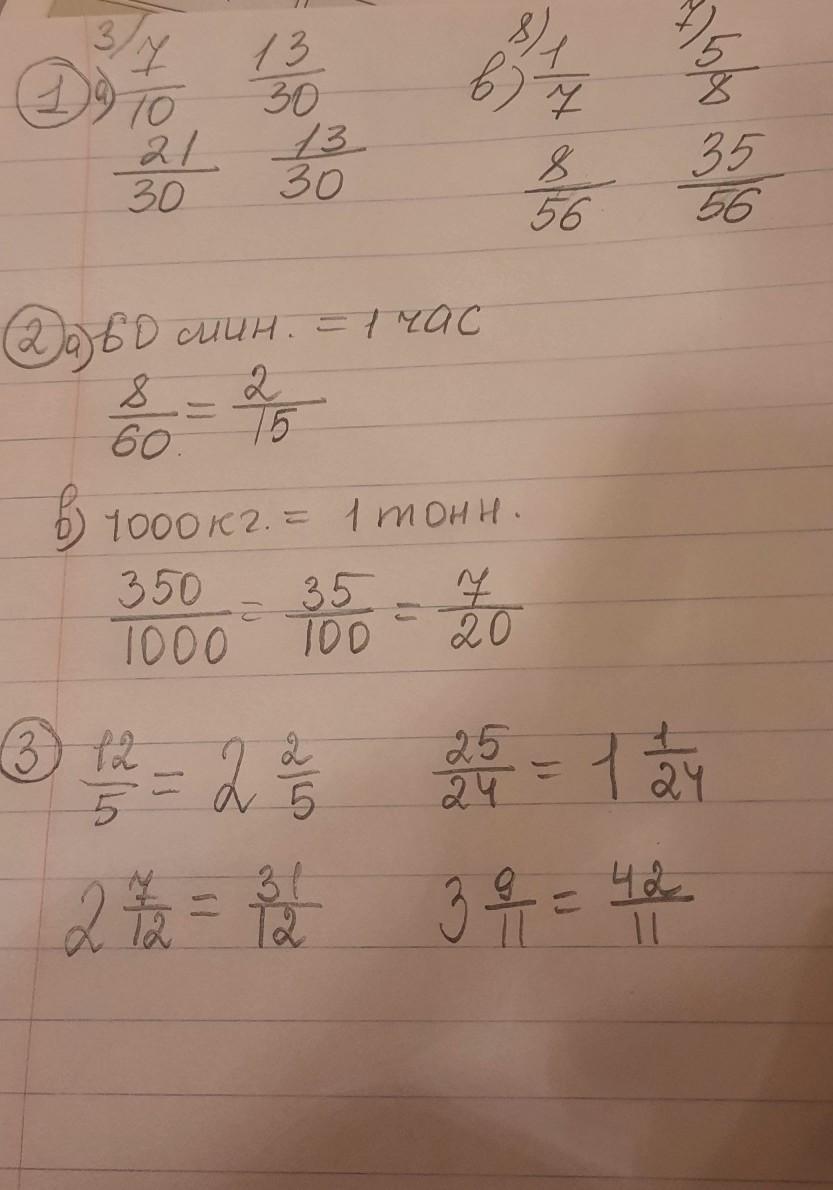 ① а) 3) 7/10 13/30 в) 8) 1/7 7) 5/8
21/30 13/30 8/56 35/56
② а) 60 мин. = 1 час
8/60 = 2/15
в) 1000 кг. = 1 тонн.
350/1000 = 35/100 = 7/20
③ 12/5 = 2 2/5 25/24 = 1 1/24
2 7/12 = 31/12 3 9/11 = 42/11